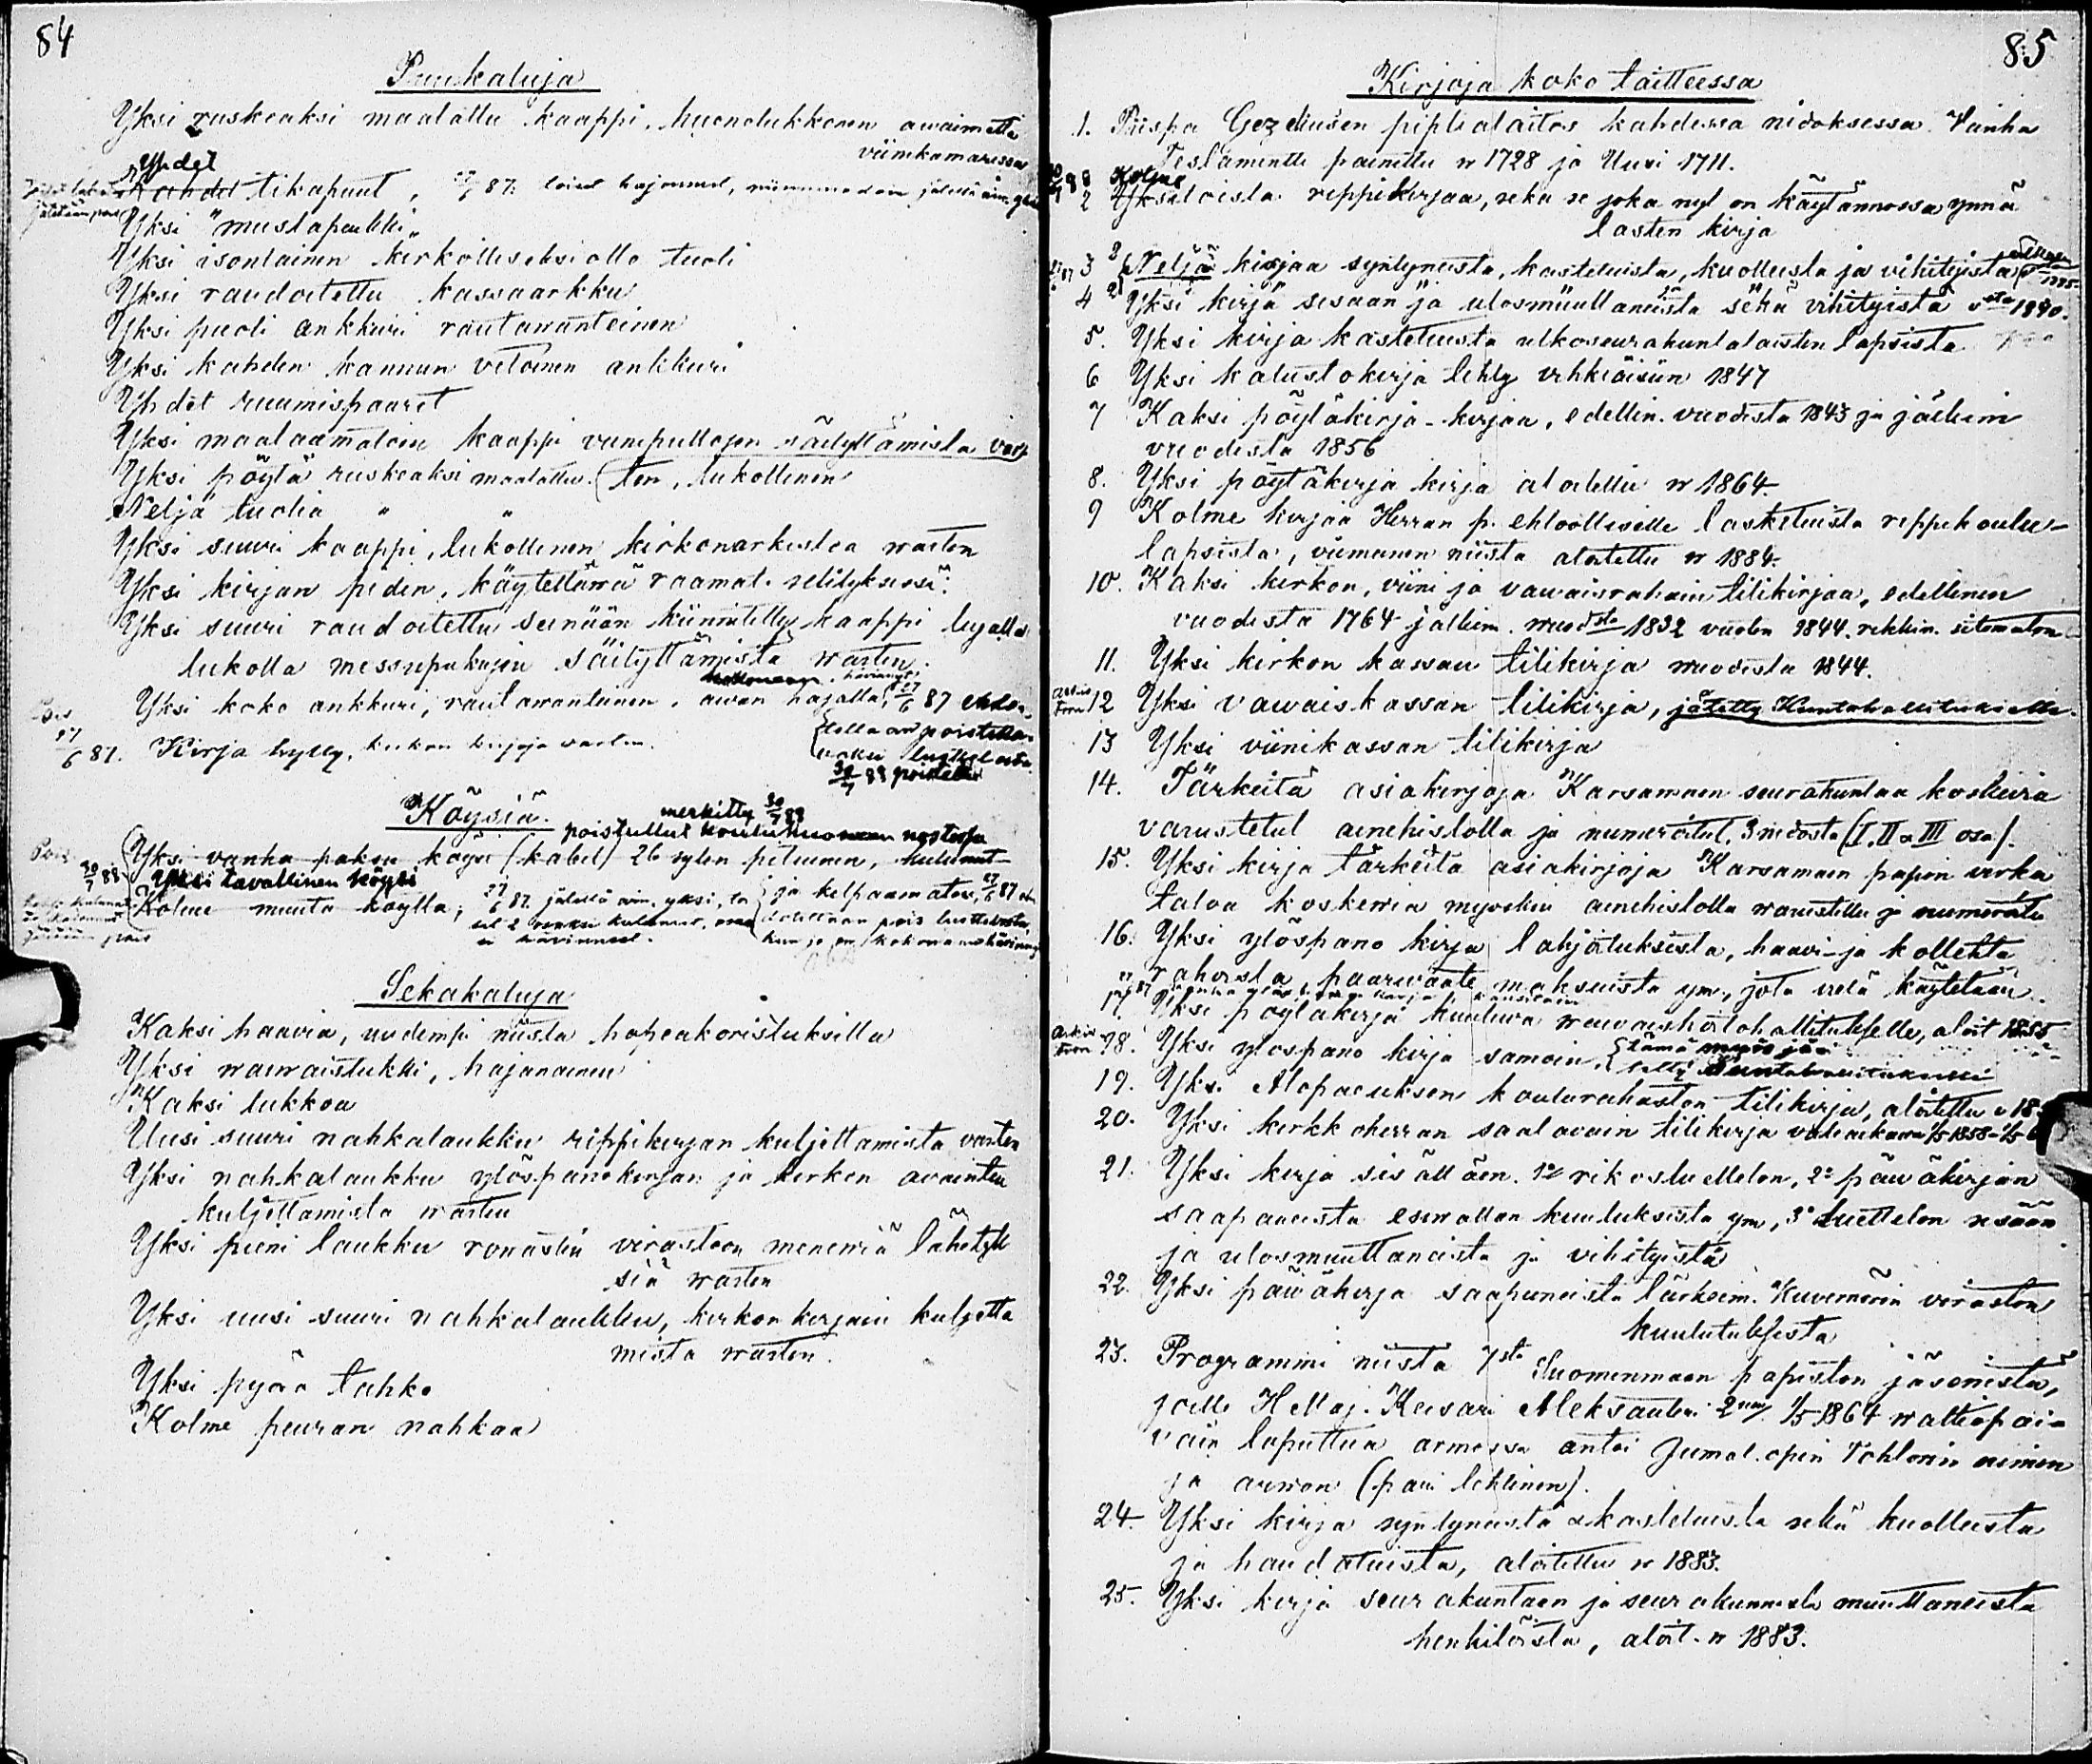 84
Puukaluja
Yksi ruskeaksi maalattu kaappi, huonolukkonen awaimetta
viinikamarissa
Yhdet
Kahdet tikapuut, 27/6 87. toiset hajonneet,
Yksi "mustapenkki"
Yksi isonlainen kirkolliseksi olto tuoli
Yksi raudoitettu kassaarkku
Yksi puoli ankkuri rautawanteinen
Yksi kahden kannun vetoinen ankkuri
Yhdet ruumispaaret
Yksi maalaamatoin kaappi viinipullojen säilyttämistä vars
Yksi pöytä ruskeaksi maalattu. (ten, lukollinen
Neljä tuolia " "
Yksi suuri kaappi, lukollinen kirkonarkistoa warten
Yksi kirjan pidin, käytettäwä raamat. selityksissä.
Yksi suuri raudoitettu seinään kiinnitetty kaappi lujalla
lukolla messupukujen säilyttämistä warten.
Yksi koko ankkuri, rautawanteinen, aiwan hajalla, 27/6 87
poistetta-
waksi luettelosta
30/7 88 poistettu
27/6 87. Kirja hylly, kirkon kirjoja varten.
Köysiä.
merkitty 30/7 88
poistullut
Yksi vanha paksu köysi (kabel) 26 sylen pituinen, kulunut
30/7 88 Yksi tavallinen köysi
Kolme muuta köyttä, 27/6 87. jälellä ain. yksi, to
ja kelpaamatoin, 27/6 87
set 2 kuluneet,
pois luettelosta,
ei hävinneet.
kun jo on kokonaan hävinnyt
Sekakaluja
Kaksi haavia, uudempi niistä hopeakoristuksilla
Yksi waiwaistukki, hajanainen
Kaksi lukkoa
Uusi suuri nahkalaukku rippikirjan kuljettamista varten
Yksi nahkalaukku ylöspanokirjan ja kirkon avainten
kuljettamista warten
Yksi pieni laukku rovastin virastoon meneviä lähetyk
siä warten
Yksi uusi suuri nahkalaukku, kirkonkirjain kuljetta
mista warten.
Yksi pyörä tahko
Kolme peuran nahkaa
85
Kirjoja koko taitteessa
1. Piispa Gezeliusen piplialaitos kahdessa nidoksessa. Vanha
Testamentti painettu w 1728 ja Uusi 1711.
Kolme
2 Yksitoista rippikirjaa, sekä se joka nyt on käytännössä ynnä
lasten kirja
3 Neljä kirjaa syntyneistä, kastetuista, kuolleista ja vihityistä
4 Yksi kirja sisään ja ulosmuuttaneista sekä vihityistä vsta 1840.
5. Yksi kirja kastetuista ulkoseurakuntalaisten lapsista
6 Yksi kalustokirja tehty vihkiäisiin 1847
7 Kaksi pöytäkirja-kirjaa, edellin. vuodesta 1843 ja jälkim
vuodesta 1856
8. Yksi pöytäkirja kirja aloitettu w 1864.
9 Kolme kirjaa Herran p. ehtoolliselle lasketuista rippikoulu-
lapsista, viimeinen niistä aloitettu w 1884.
10. Kaksi kirkon, viini ja vaivaisrahain tilikirjaa, edellinen
vuodesta 1764 jälkim. wuodsta 1832 vuoten 1844.
11. Yksi kirkon kassan tilikirja wuodesta 1844.
12 Yksi vawaiskassan tilikirja, jätetty Kuntahallitukselle.
13 Yksi viinikassan tilikirja
14. Tärkeitä asiakirjoja Kärsämäen seurakuntaa koskevia
varustetut ainehistolla ja numeroitut. 3 nidosta (I, II & III osa).
15. Yksi kirja tärkeitä asiakirjoja Kärsämäen papin virka
taloa koskewia myöskin ainehistolla warustettu ja numeroitu
16. Yksi ylöspano kirja lahjoituksista, haavi- ja kollehta
rahoista, paarivaate maksuista ym., jota vielä käytetään.
17. Yksi pöytäkirja kuuluwa waivashoitohallitukselle, aloit. 1855
18. Yksi ylöspano kirja samoin, (tämä myös jä
tetty Kuntahallitukselle
19. Yksi Alopaeuksen koulurahaston tilikirja, aloitettu w 18
20. Yksi kirkkoherran saatavain tilikirja väliaikana 1/5 1858-1/5 6
21. Yksi kirja sisältäen. 1o rikosluettelon, 2o päiväkirjan
saapuneista esivallan kuulutuksista ym., 3o luettelon sisään
ja ulosmuuttaneista ja vihityistä
22. Yksi päiväkirja saapuneista tärkeim. Kuvernörin viraston
kuulutuksista
23. Programmi niistä 7stä Suomenmaan papiston jäsenistä,
joille H Maj. Keisari Aleksanteri 2nen 1/5 1864 waltiopäi-
väin loputtua armossa antoi Jumal. opin Tohtorin nimen
ja arwon (pari lehtinen).
24. Yksi kirja syntyneistä & kastetuista sekä kuolleista
ja haudatuista, aloitettu w 1883.
25. Yksi kirja seurakuntaan ja seurakunnasta muuttaneista
henkilöistä, aloit. w 1883.